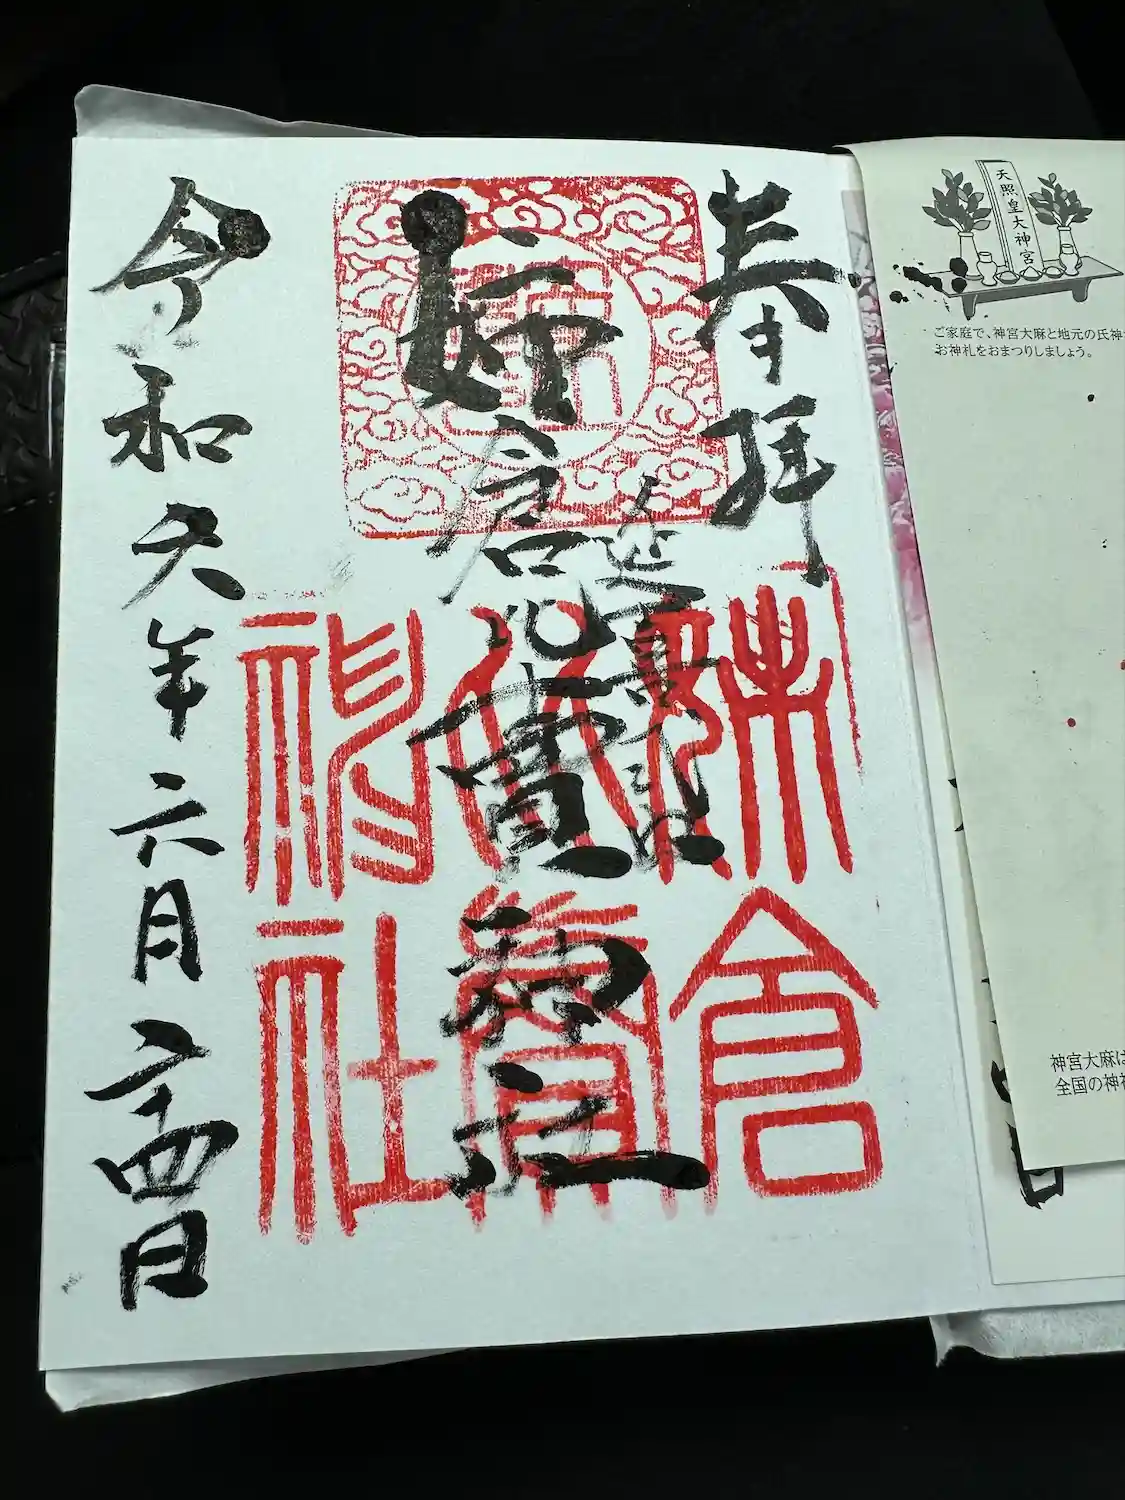 奉拝
延喜式内
姉倉比賣神社
令和六年六月二十四日
姉倉
比賣
神社
天照皇大神宮
ご家庭で、神宮大麻と地元の氏神
お神札をおまつりしましょう。
神宮大麻は
全国の神